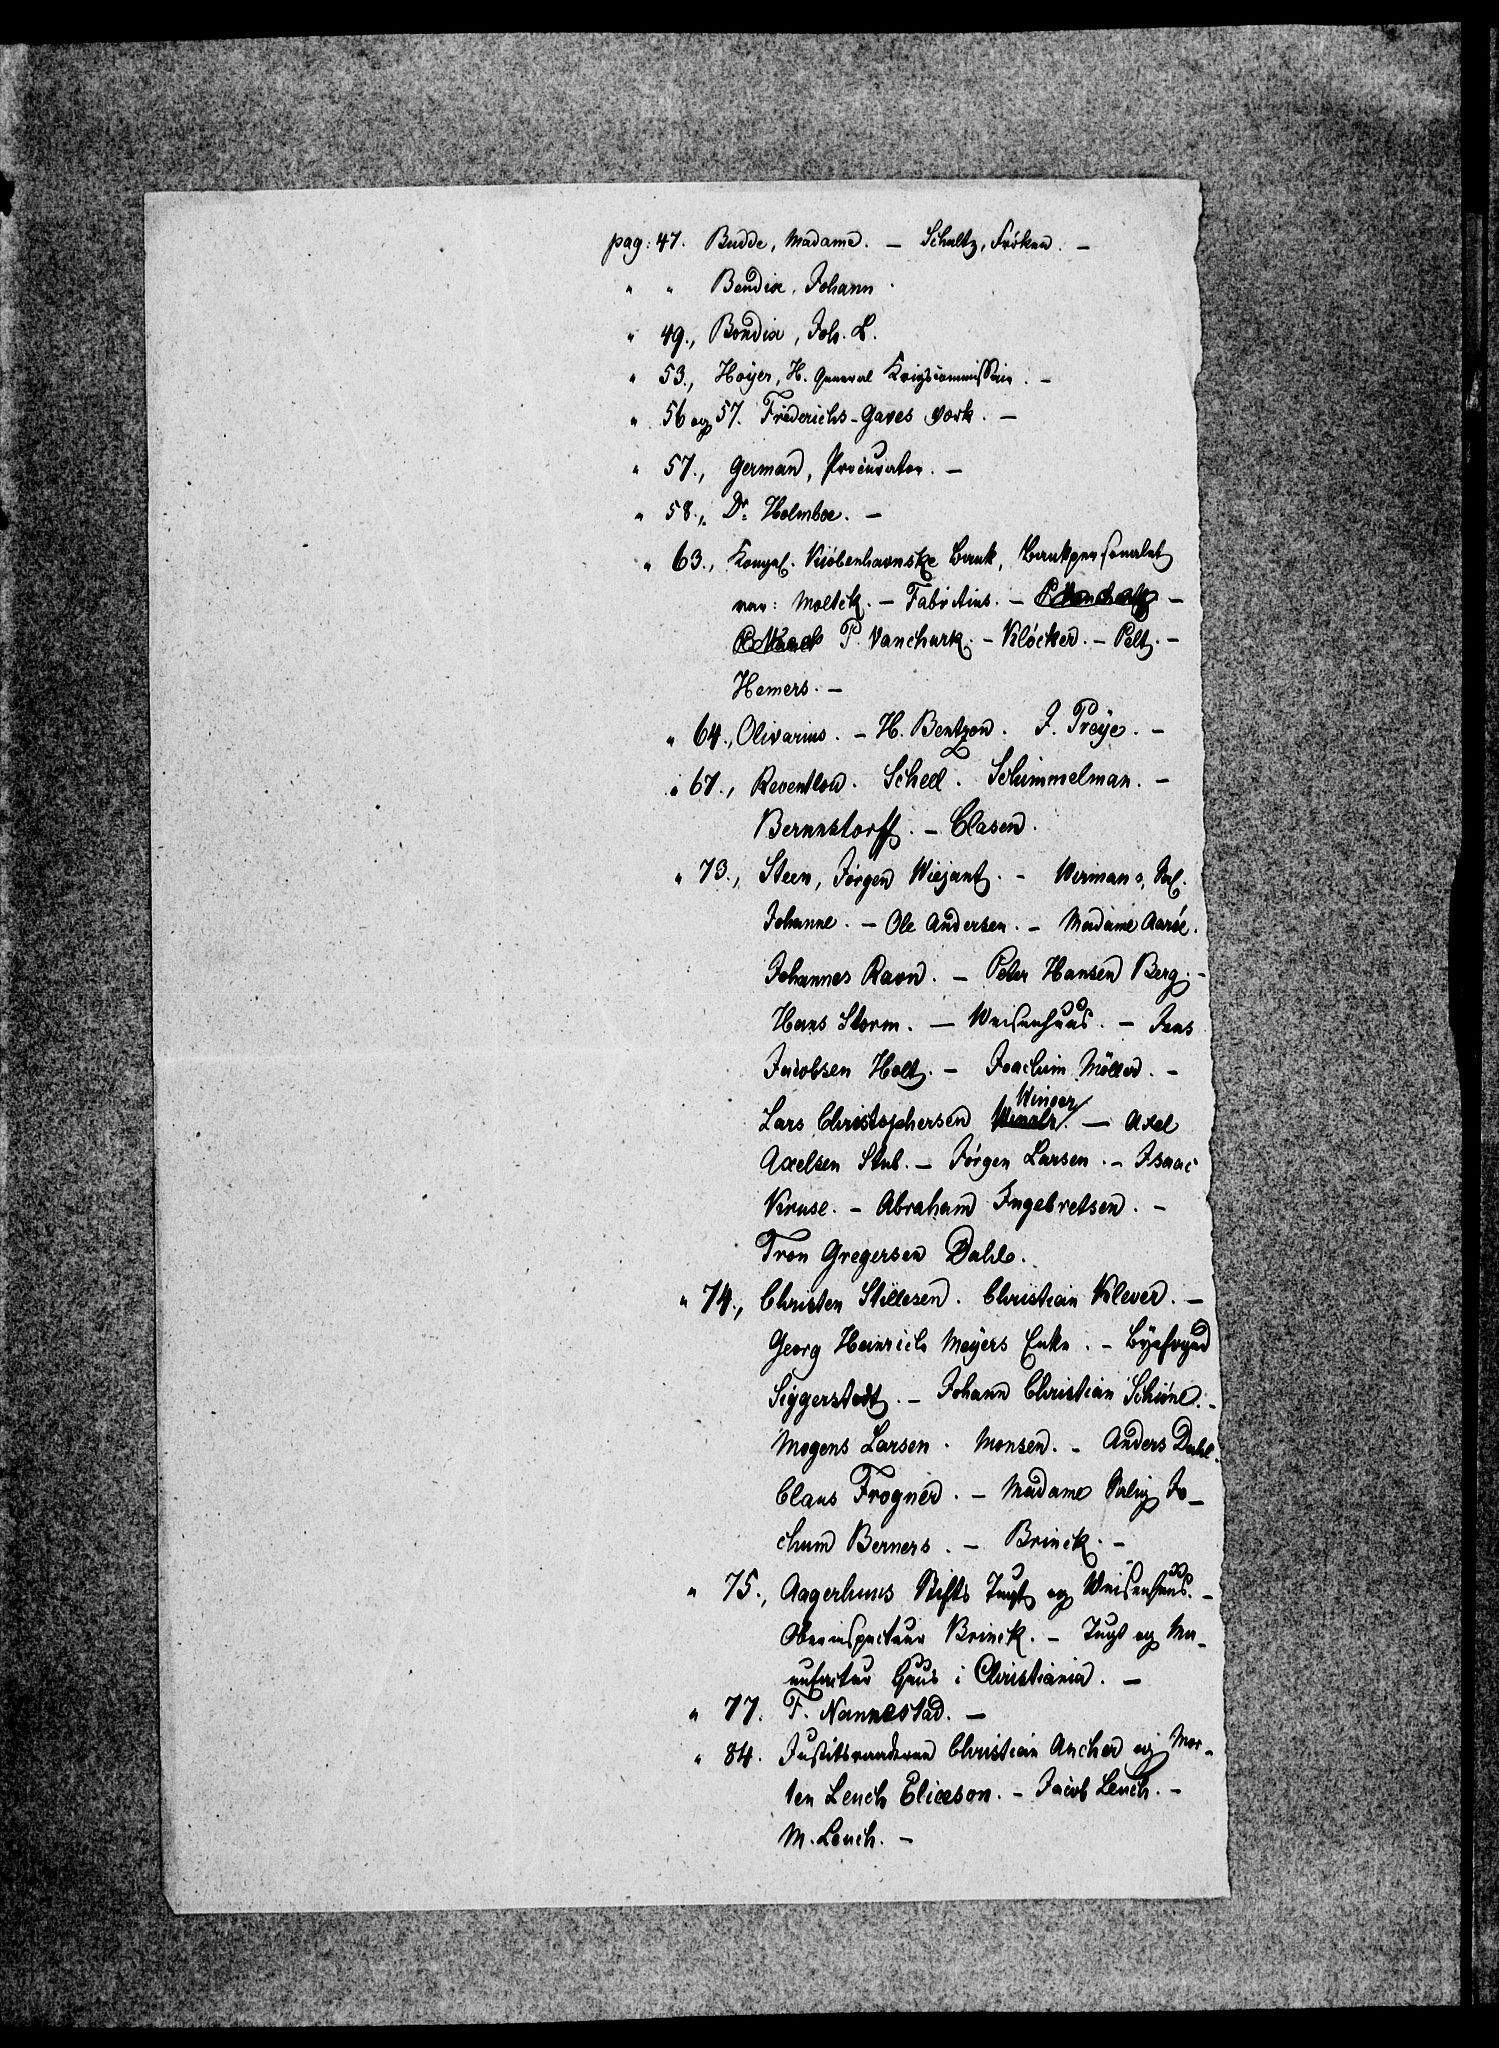 pag: 47. Budde, Madame. — Schultz, Fröken. —
" " Bendix, Johann.
" 49., Bondix, Joh. L.
" 53., Höyer, H. General Krigscommissair. —
" 56 og 57. Friderichs-Gaves Værk. —
" 57., German, Procurator. —
" 58., Dr. Holmboe. —
" 63., Kongel. Kiöbenhavnske Bank, Bankpersonalet
var: Moltck. — Fabritius. — —
P. Vanchurk. — Klöcker. — Pelt. —
Hemers. —
" 64., Olivarius. — H. Bentzon. J. Preÿe. —
" 67., Reventlow. Scheel. Schimmelman. —
Bernnstorff. — Clasen.
" 73., Steen, Jörgen Wiezant. — Wirmans, Sal.
Johanne. — Ole Andersen. — Madame Aaröe.
Johannes Ravn. — Peter Hansen Berg. —
Hans Storm. — Waisenhuus. — Jens
Jacobsen Holt. — Joachim Möller. —
Lars Christophersen Winger. — Axel
Axelsen Stub. — Jörgen Larsen. — Isaac
Kruse. — Abraham Ingebretsen. —
Tron Gregersen Dahle.
" 74., Christen Stillesen. Christian Klever. —
Georg Heinrich Meÿers Enke. — Bÿefoged
Siggerstedt. — Johann Christian Schöne. —
Mogens Larsen. Monsen. — Anders Dahl.
Claus Frogner. — Madame Salig Jo-
chum Berners. — Brinck. —
" 75., Aagerhuus Stifts Tugt og Waisenhuus. —
Oberinspecteur Brinck. — Tugt og Ma-
nufactur Huus i Christiania. —
" 77. F. Nannestad. —
" 84. Justitsraaderne Christian Ancher og Mor-
ten Leuch Elieson. — Jacob Leuch. —
M. Leuch. —